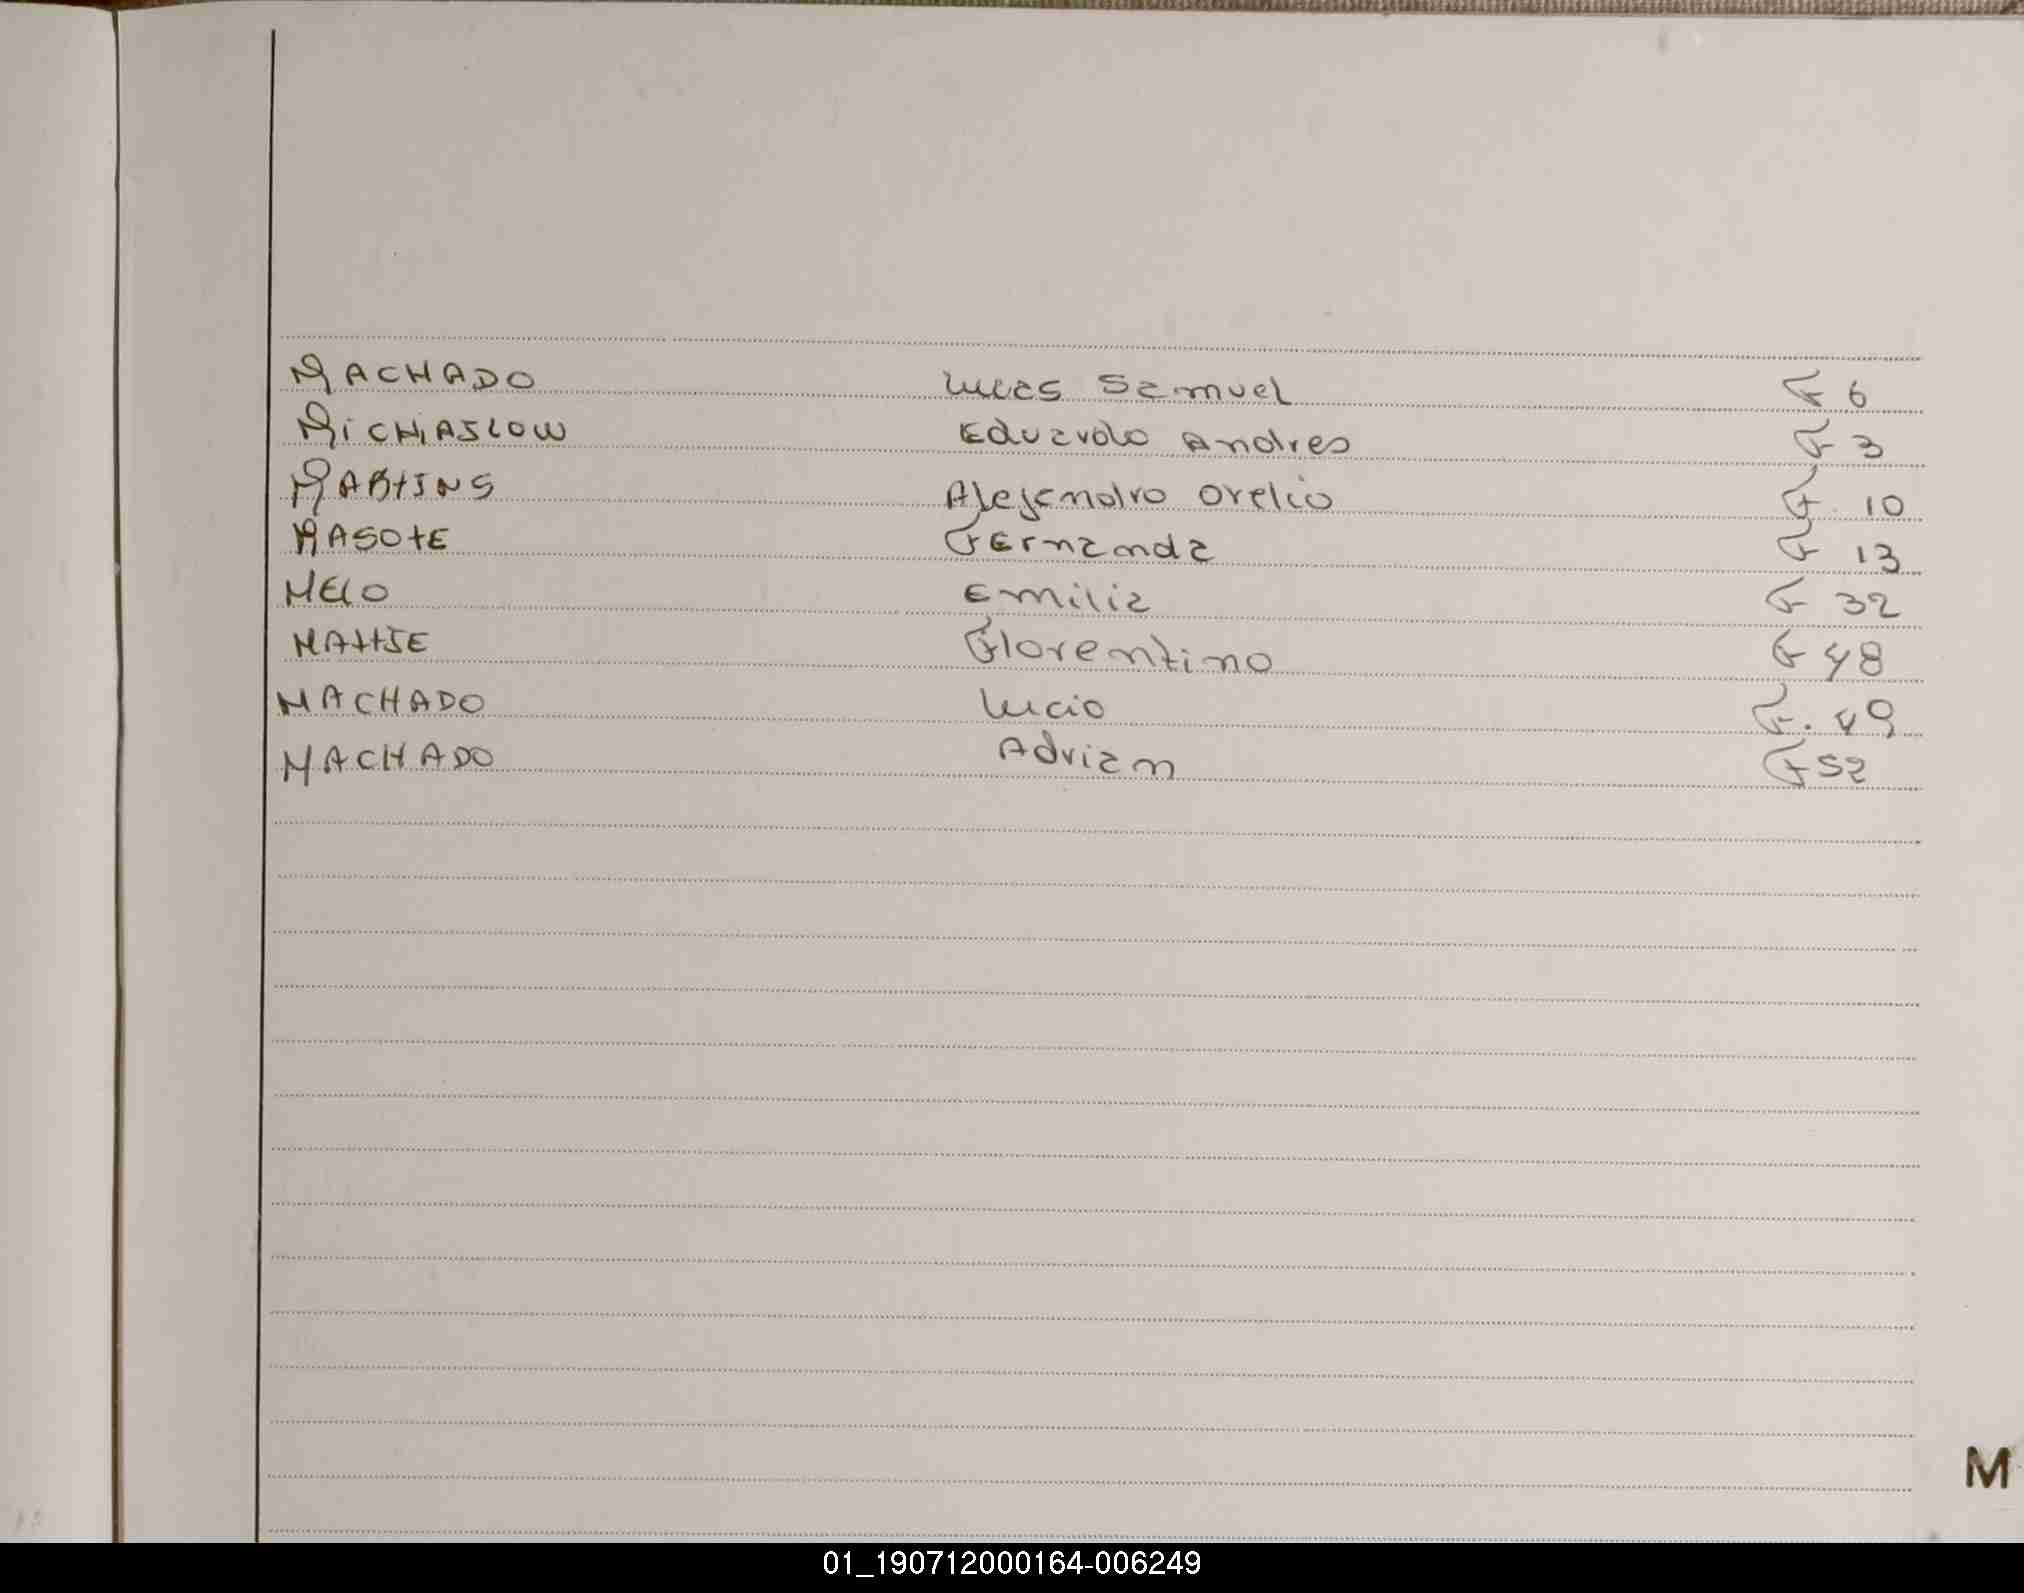 MACHADO Lucas Samuel F 6
MICHIASLOW Eduardo Andres F 3
MARTINS Alejandro Orelio F. 10
MASOTE Fernanda F 13
MELO Emilia F 32
MATTJE Florentino F 48
MACHADO Lucio F. 49
MACHADO Adrian F 52
M
01_190712000164-006249